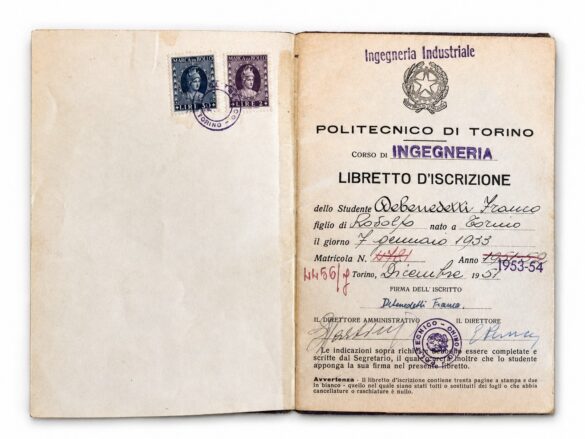 MARCA DA BOLLO
MARCA DA BOLLO
LIRE 2
TORINO
Ingegneria Industriale
POLITECNICO DI TORINO
CORSO DI INGEGNERIA
LIBRETTO D'ISCRIZIONE
dello Studente Debenedetti Franco
figlio di Rodolfo nato a Torino
il giorno 7 gennaio 1933
Matricola N. 4781 Anno 1951-52
1953-54
4456/J Torino, Dicembre 1951
FIRMA DELL'ISCRITTO
Debenedetti Franco
IL DIRETTORE AMMINISTRATIVO IL DIRETTORE
POLITECNICO TORINO
Le indicazioni sopra richieste essere completate e
scritte dal Segretario, il quale inoltre che lo studente
apponga la sua firma nel presente libretto.
Avvertenza - Il libretto d'iscrizione contiene trenta pagine a stampa e due
in bianco - quello nel quale siano stati tolti o sostituiti dei fogli o che abbia
cancellature o raschiature è nullo.